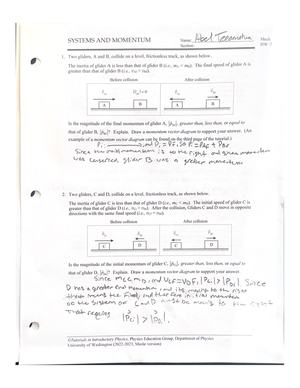 SYSTEMS AND MOMENTUM
Name: Abel
Section:
Mech
HW-
1. Two gliders, A and B, collide on a level, frictionless track, as shown below.
The inertia of glider A is less than that of glider B (i.e., mA < mB). The final speed of glider A is
greater than that of glider B (i.e., vAf > vBf).
Before collision
After collision
A
B
A
B
Is the magnitude of the final momentum of glider A, |pAf|, greater than, less than, or equal to
that of glider B, |pBf|? Explain. Draw a momentum vector diagram to support your answer. (An
example of a momentum vector diagram can be found on the third page of the tutorial.)
Since the momentum is to the right and given momentum
was conserved, glider B was a greater momentum
2. Two gliders, C and D, collide on a level, frictionless track, as shown below.
The inertia of glider C is less than that of glider D (i.e., mC < mD). The initial speed of glider C is
greater than that of glider D (i.e., vCi > vDi). After the collision, Gliders C and D move in opposite
directions with the same final speed (i.e., vCf = vDf).
Before collision
After collision
C
D
C
D
Is the magnitude of the initial momentum of glider C, |pCi|, greater than, less than, or equal to
that of glider D, |pDi|? Explain. Draw a momentum vector diagram to support your answer.
Since mC < mD, and vCF = vDF, |pCi| > |pDi|. Since
D has a greater end momentum and its moving to the right
that means the final, and therefore initial momentum
of the system of C and D must be moving to the right
that requires |pCi| > |pDi|.
©Tutorials in Introductory Physics, Physics Education Group, Department of Physics
University of Washington (2022-2023, Mazur version)